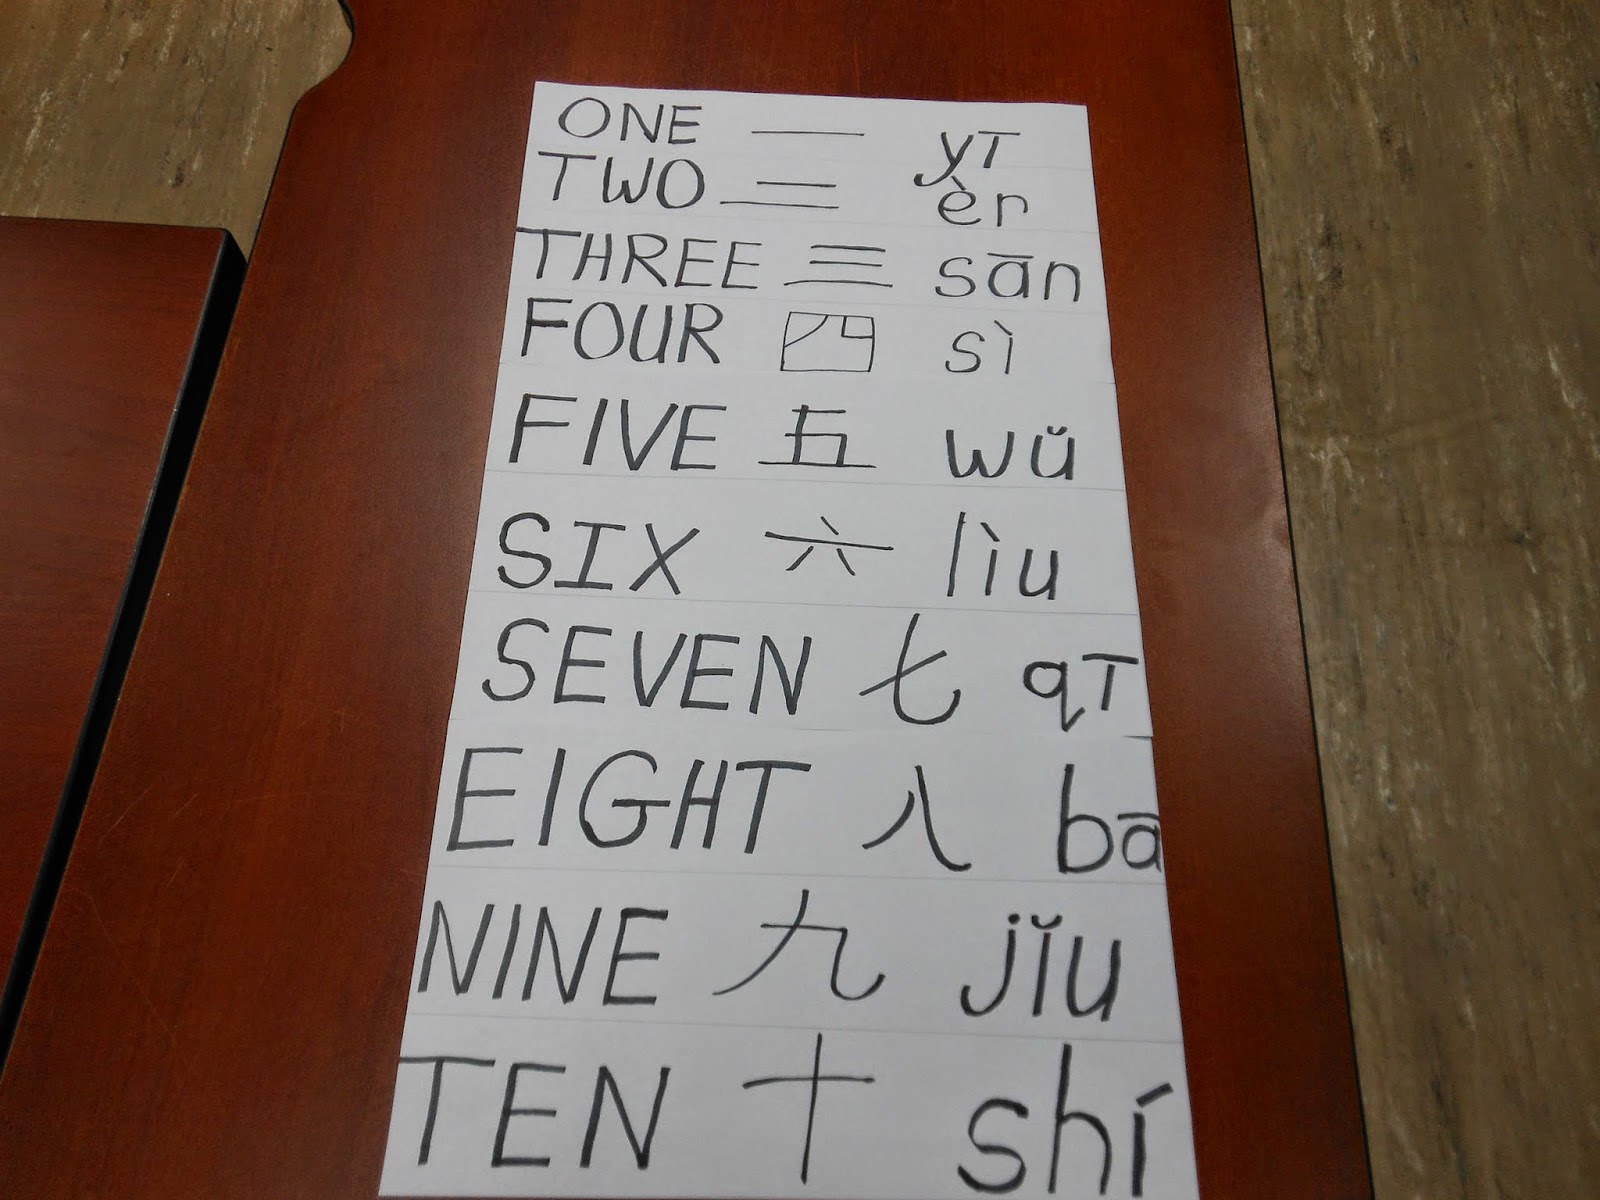 ONE 一 yī
TWO 二 èr
THREE 三 sān
FOUR 四 sì
FIVE 五 wŭ
SIX 六 lìu
SEVEN 七 qī
EIGHT 八 bā
NINE 九 jĭu
TEN 十 shí